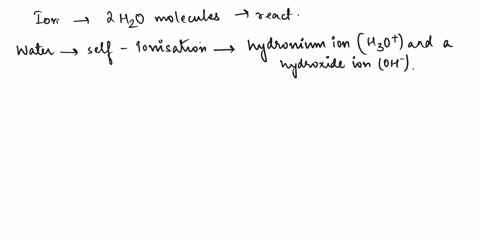 Ion → 2 H2O molecules → react.
Water → self - Ionisation → hydronium ion (H3O+) and a
hydroxide ion (OH-).